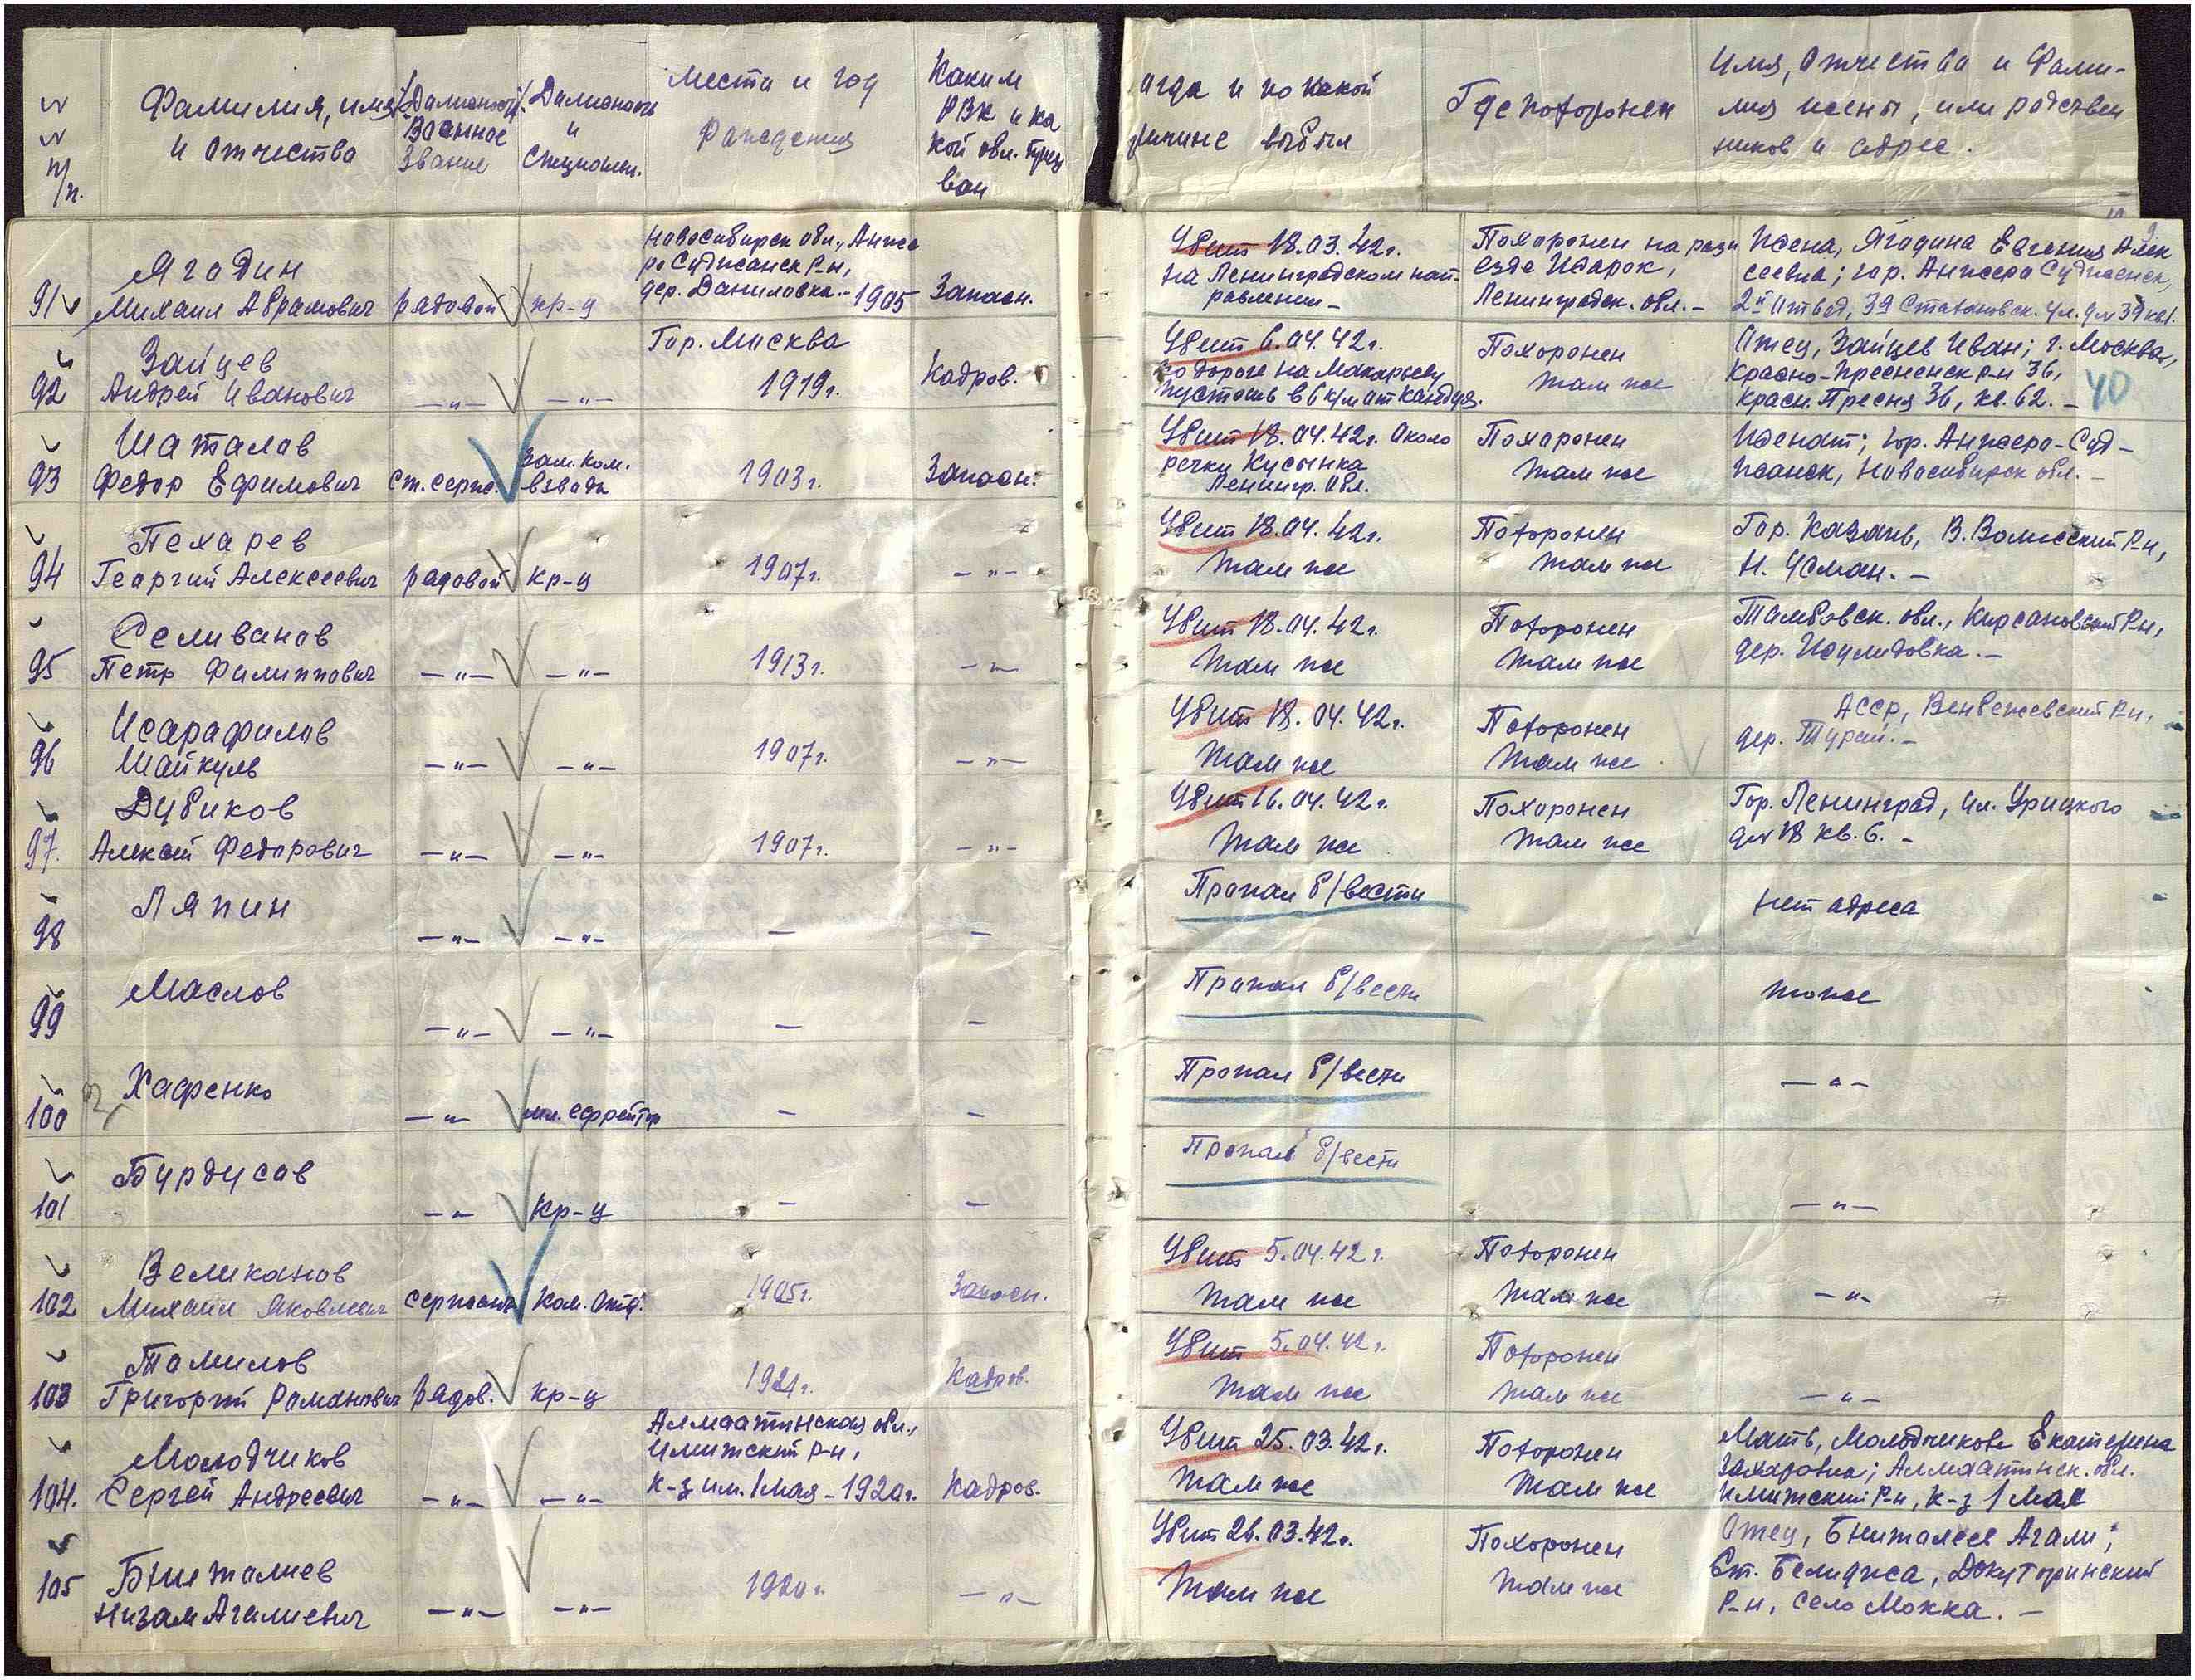 № № п/п.
Фамилия, имя и отчества
Военное звание
и специальн.
Места и год рождения
Каким РВК и какой обл. призван
по какой причине выбыл
Где похоронен
Имя, отчества и фамилия жены, или родственников и адрес.
91 Ягодин Михаил Абрамович
рядовой кр-ц
Новосибирск обл., Анжеро Судженск р-н, дер. Даниловка. - 1905
Запасн.
Убит 18.03.42г. на Ленинградском направлении -
Похоронен на разъезде Жарок, Ленинградск. обл. -
Жена, Ягодина Евгения Алексеевна; гор. Анжеро Судженск,
92 Зайцев Андрей Иванович
-"- -"-
Гор. Москва 1919г.
Кадров.
Убит 6.04.42г. по дороге на
Похоронен там же
Отец, Зайцев Иван; г. Москва, Красно-Пресненск р-н 36, Красн. Пресня 36, кв. 62. -
40
93 Шаталов Федор Ефимович
Ст. серж. Зам. ком. взвода
1903г.
Запасн.
Убит 18.04.42г. около речки Кусынка Ленингр. обл.
Похоронен там же
Женат; гор. Анжеро-Судженск, Новосибирск обл. -
94 Пехарев Георгий Алексеевич
рядовой кр-ц
1907г.
-"-
Убит 18.04.42г. там же
Похоронен там же
Гор. Казань, В. р-н, Н. Усман. -
95 Селиванов Петр Филиппович
-"- -"-
1913г.
-"-
Убит 18.04.42г. там же
Похоронен там же
Тамбовск. обл., Кирсановский р-н, дер.
96 Исарафилов Шайкуль
-"- -"-
1907г.
-"-
Убит 18.04.42г. там же
Похоронен там же
АССР, р-н, дер. Турай. -
97. Дубиков Алексей Федорович
-"- -"-
1907г.
-"-
Убит 16.04.42г. там же
Похоронен там же
Гор. Ленинград, ул. Урицкого дм 18 кв. 6. -
98 Ляпин
-"- -"- - -
Пропал б/вести
нет адреса
99 Маслов
-"- -"- - -
Пропал б/вести
тоже
100 Хафренко
-"- мл. ефрейтор - -
Пропал б/вести
-"-
101 Бурдусов
-"- кр-ц - -
Пропал б/вести
-"-
102 Великанов Михаил Яковлевич
сержант Ком. отд.
1905г.
Запасн.
Убит 5.04.42г. там же
Похоронен там же
-"-
103 Томилов Григорий Романович
рядов. кр-ц
1921г.
Кадров.
Убит 5.04.42г. там же
Похоронен там же
-"-
104. Молодчиков Сергей Андреевич
-"- -"-
Алмаатинская обл., Илийский р-н, к-з им. 1 мая - 1920г.
Кадров.
Убит 25.03.42г. там же
Похоронен там же
Мать, Молодчикова Екатерина Захаровна; Алмаатинск. обл. Илийский р-н, к-з 1 мая
105 Низам Агалиевич
-"- -"-
1920г.
-"-
Убит 26.03.42г. там же
Похоронен там же
Отец, Агали; Ст. Белиджа, р-н, село Мокка. -